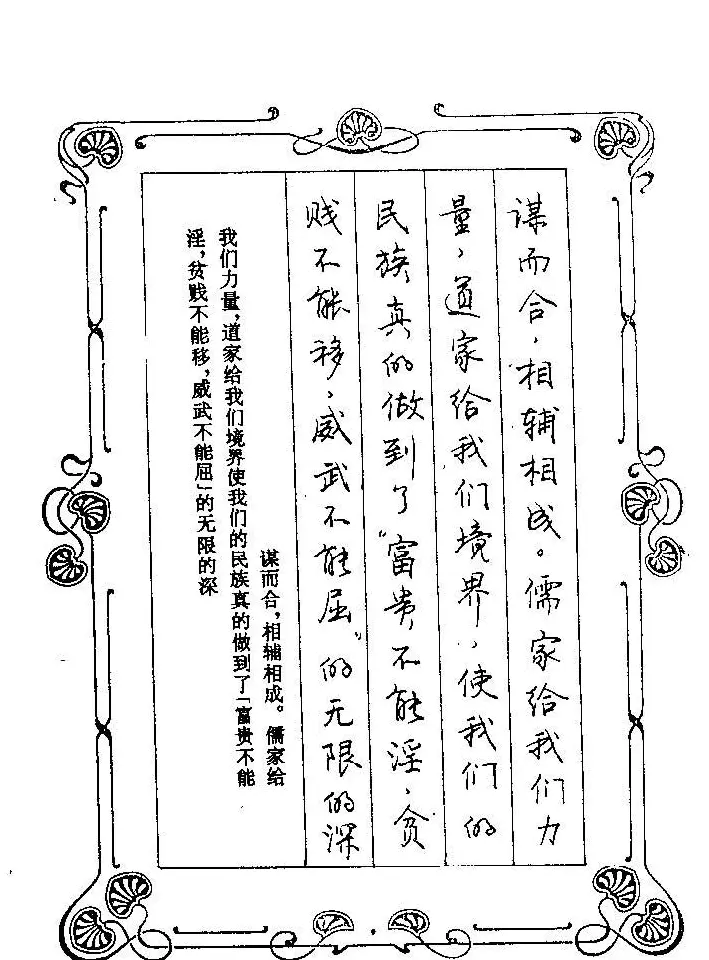 谋而合，相辅相成。儒家给我们力
量，道家给我们境界，使我们的
民族真的做到了“富贵不能淫，贫
贱不能移，威武不能屈”的无限的深
谋而合，相辅相成。儒家给
我们力量，道家给我们境界使我们的民族真的做到了「富贵不能
淫，贫贱不能移，威武不能屈」的无限的深